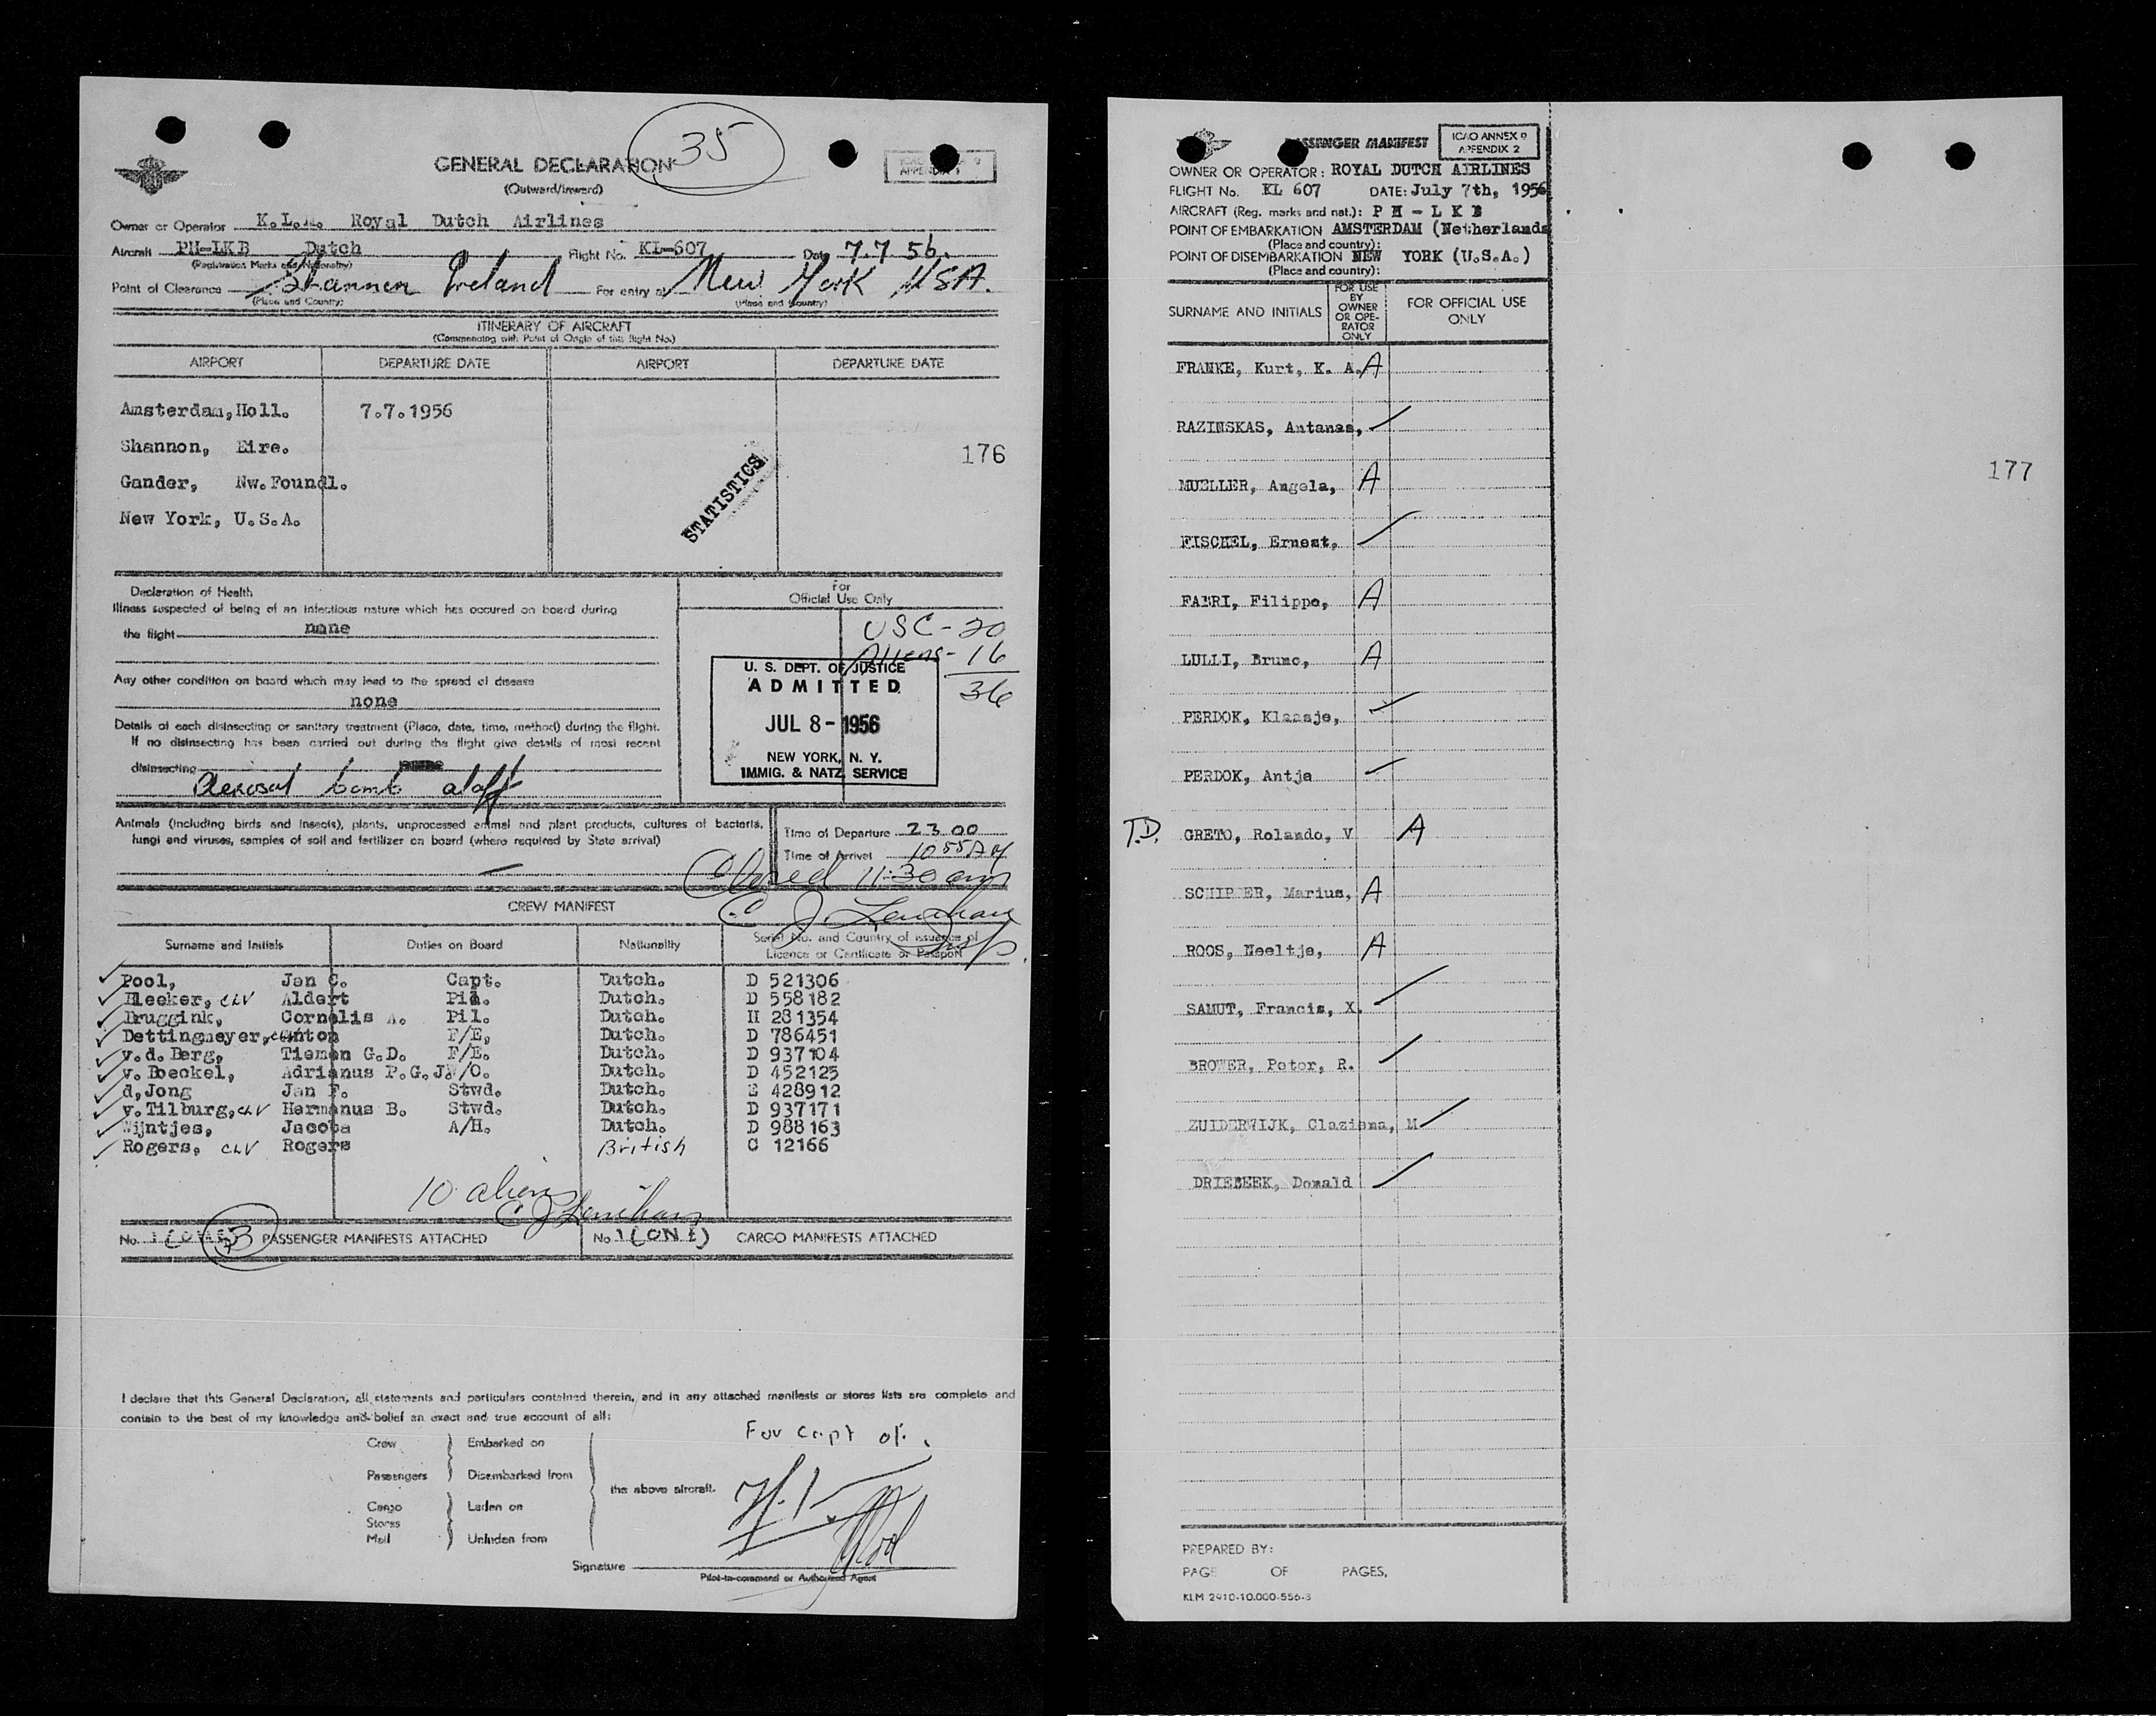 35
GENERAL DECLARATION
(Outward/Inward)
APPENDIX 1
Owner or Operator K.L.M. Royal Dutch Airlines
Aircraft PH-LKB Dutch Flight No. KL-607 Date 7.7.56.
(Registration Marks and Nationality)
Point of Clearance Shannon Ireland For entry at New York USA.
(Place and Country) (Place and Country)
ITINERARY OF AIRCRAFT
(Commencing with Point of Origin of this flight No.)
AIRPORT DEPARTURE DATE AIRPORT DEPARTURE DATE
Amsterdam, Holl. 7.7.1956
Shannon, Eire.
176
Gander, Nw. Foundl.
STATISTICS
New York, U.S.A.
Declaration of Health
Illness suspected of being of an infectious nature which has occured on board during
the flight none
Any other condition on board which may lead to the spread of disease
none
Details of each disinsecting or sanitary treatment (Place, date, time, method) during the flight.
If no disinsecting has been carried out during the flight give details of most recent
disinsecting
Aerosol bomb aloft
For
Official Use Only
USC - 20
Aliens - 16
36
U. S. DEPT. OF JUSTICE
ADMITTED
JUL 8 - 1956
NEW YORK, N. Y.
IMMIG. & NATZ. SERVICE
Animals (including birds and insects), plants, unprocessed animal and plant products, cultures of bacteria,
fungi and viruses, samples of soil and fertilizer on board (where required by State arrival)
Time of Departure 23 00
Time of Arrival 10 55 AM
Cleared 11:30 am
C. J. Lenihan
Insp.
CREW MANIFEST
Surname and Initials Duties on Board Nationality Serial No. and Country of issuance of
Licence or Certificate or Passport
Pool, Jan C. Capt. Dutch. D 521306
Bleeker, CLV Aldert Pil. Dutch. D 558182
Bruggink, Cornelis A. Pil. Dutch. H 281354
Dettingmeyer, Anton F/E, Dutch. D 786451
v.d. Berg, Tiemen G.D. F/E. Dutch. D 937104
v. Boeckel, Adrianus P.G.J. W/O. Dutch. D 452125
d,Jong Jan F. Stwd. Dutch. E 428912
v.Tilburg, CLV Hermanus B. Stwd. Dutch. D 937171
Wijntjes, Jacoba A/H. Dutch. D 988163
Rogers, CLV Rogers British C 12166
10 aliens
C J Lenihan
No. 1 (ONE) 3 PASSENGER MANIFESTS ATTACHED No. 1 (ONE) CARGO MANIFESTS ATTACHED
I declare that this General Declaration, all statements and particulars contained therein, and in any attached manifests or stores lists are complete and
contain to the best of my knowledge and belief an exact and true account of all:
Crew Embarked on
Passengers Disembarked from
Cargo Laden on
Stores
Mail Unladen from
the above aircraft.
For capt of.
Signature
Pilot-in-command or Authorized Agent
PASSENGER MANIFEST
ICAO ANNEX 9
APPENDIX 2
OWNER OR OPERATOR: ROYAL DUTCH AIRLINES
FLIGHT No. KL 607 DATE: July 7th, 1956
AIRCRAFT (Reg. marks and nat.): P H - L K B
POINT OF EMBARKATION AMSTERDAM (Netherlands
(Place and country):
POINT OF DISEMBARKATION NEW YORK (U.S.A.)
(Place and country):
SURNAME AND INITIALS
FOR USE
BY
OWNER
OR OPE-
RATOR
ONLY
FOR OFFICIAL USE
ONLY
FRANKE, Kurt, K. A. A
RAZINSKAS, Antanas,
MUELLER, Angela, A
177
FISCHEL, Ernest,
FABRI, Filippo, A
LULLI, Bruno, A
PERDOK, Klaasje,
PERDOK, Antje
T.D. GRETO, Rolando, V A
SCHIPPER, Marius, A
ROOS, Neeltje, A
SAMUT, Francis, X.
BROWER, Peter, R.
ZUIDERWIJK, Claziena, M
DRIEBEEK, Donald
PREPARED BY:
PAGE OF PAGES,
KLM 2910-10.000-556-3